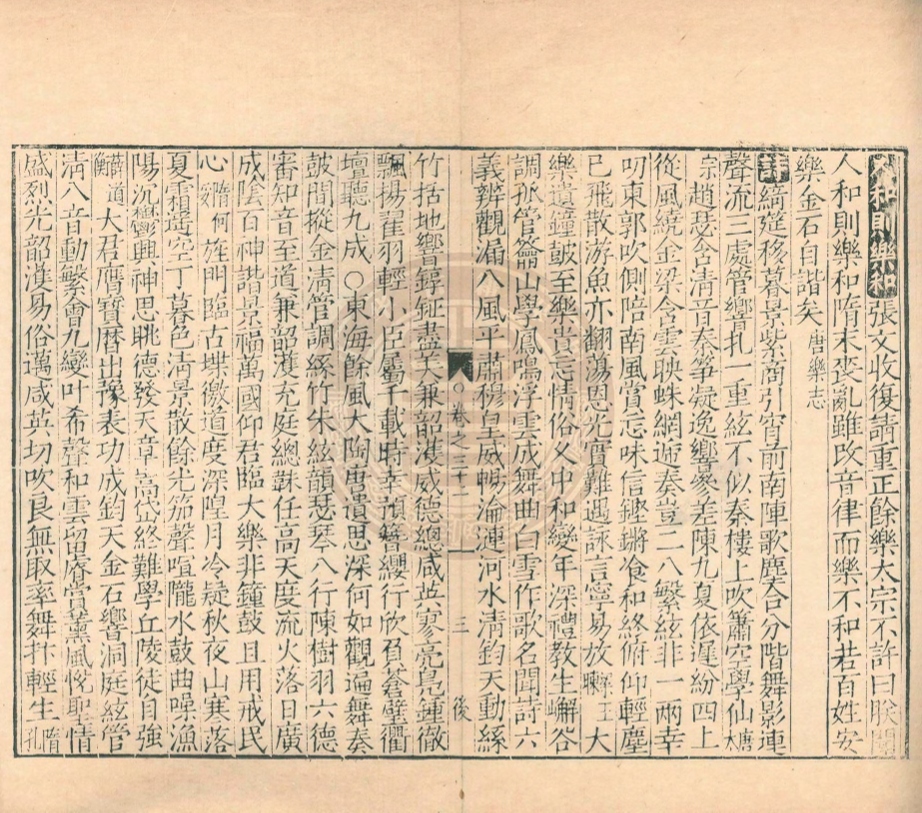 人和則樂和張文收復請重正餘樂太宗不許曰朕聞
人和則樂和隋末喪亂雖改音律而樂不和若百姓安
樂金石自諧矣唐樂志
詩綺筵移暮景紫商引宵前南陣歌塵合分階舞影連
聲流三處管響扎一重絃不似秦樓上吹簫空學仙唐太
宗趙瑟含清音秦箏凝逸響參差陳九夏依遲紛四上
從風繞金梁含雲映蛛網迊奏豈二八繁絃非一兩幸
叨東郭吹側陪南風賞忘味信鏗鏘飡和終俯仰輕塵
已飛散游魚亦翻蕩恩光實難遇詠言寧易放王暕大
樂遺鐘皷至樂貴忘情俗乂中和變年深禮教生嶰谷
調孤管崙山學鳳鳴浮雲成舞曲白雪作歌名聞詩六
義辨觀漏八風平肅穆皇威暢淪漣河水清鈞天動絲
○卷之三十二 一 三 後
竹括地響錞鉦盡美兼韶濩威德總咸英寥亮鳧鍾徹
飄揚翟羽輕小臣屬千載時幸預簪纓行欣負蒼璧衢
壇聽九成○東海餘風大陶唐遺思深何如觀遍舞奏
皷間摐金清管調絲竹朱絃韻瑟琴八行陳樹羽六德
審知音至道兼韶濩充庭總韎任高天度流火落日廣
成陰百神諧景福萬國仰君臨大樂非鐘鼓且用戒民
心隋何妥旌門臨古堞徼道度深隍月冷疑秋夜山寒落
夏霜遙空丁暮色清景散餘光笳聲喧隴水鼓曲噪漁
陽沉鬱興神思眺德發天章嵩岱終難學丘陵徒自強
薛道衡大君膺寶曆出豫表功成鈞天金石響洞庭絃管
清八音動繁會九變叶希聲和雲留睿賞薰風悅聖情
盛烈光韶濩易俗邁咸英切吹良無取率舞抃輕生隋孔